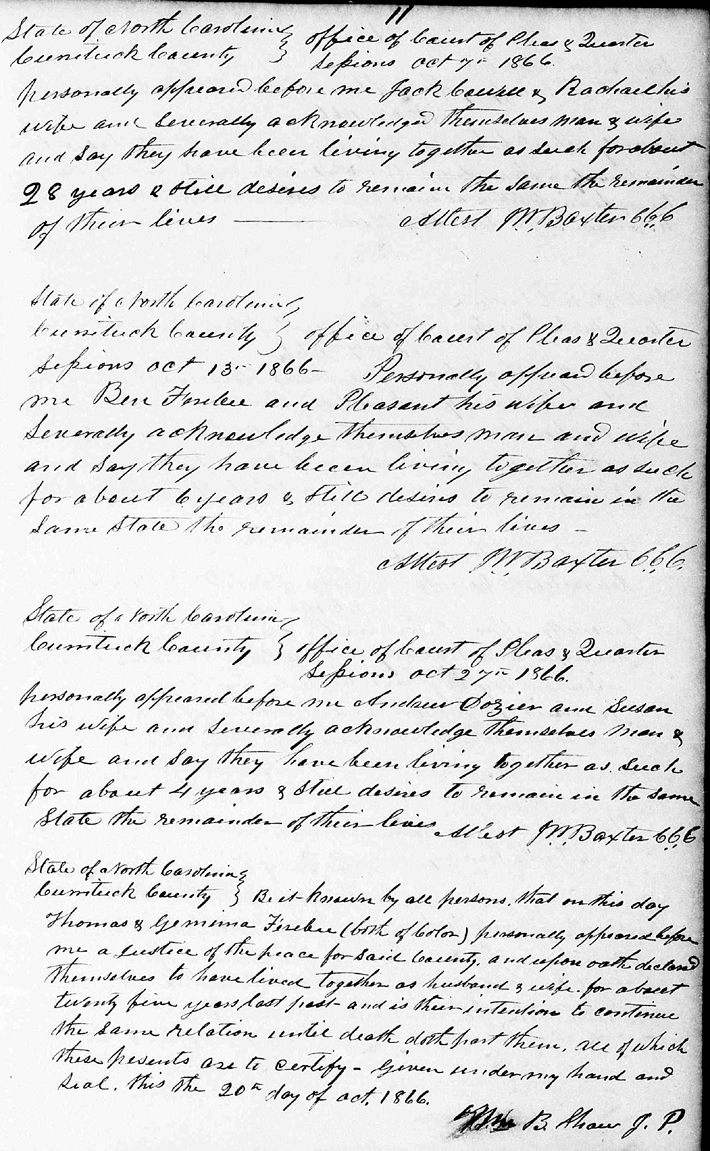 11
State of North Carolina
Currituck County } office of Court of Pleas & Quarter
Sessions Oct 7th 1866.
personally appeared before me Jack Cowell & Rachael his
wife and Severally acknowledged themselves man & wife
and Say they have been living together as such for about
28 years & Still desires to remain the Same the remainder
of their lives — Attest J W Baxter C.C.C
State of North Carolina
Currituck County } office of Court of Pleas & Quarter
Sessions Oct 13th 1866 – Personally appeard before
me Ben Ferebee and Pleasant his wife and
Severally acknowledge themselves man and wife
and Say they have been living together as such
for about 6 years & Still desires to remain in the
Same State the remainder of their lives –
Attest J W Baxter C.C.C.
State of North Carolina
Currituck County } office of Court of Pleas & Quarter
Sessions Oct 27th 1866.
personally appeared before me Andrew Dozier and Susan
his wife and Severally acknowledge themselves man &
wife and Say they have been living together as Such
for about 4 years & Still desires to remain in the Same
State the remainder of their lives Attest J W Baxter C.C.C
State of North Carolina
Currituck County } Be it known by all persons, that on this day
Thomas & Gemima Ferebee (both of Color) personally appeared before
me a Justice of the peace for said County, and upon oath declared
themselves to have lived together as husband & wife for about
twenty five years, last past and is their intention to continue
the Same relation until death doth part them, all of which
these presents are to certify – Given under my hand and
Seal. this the 20th day of Oct. 1866.
B. Shaw J. P.